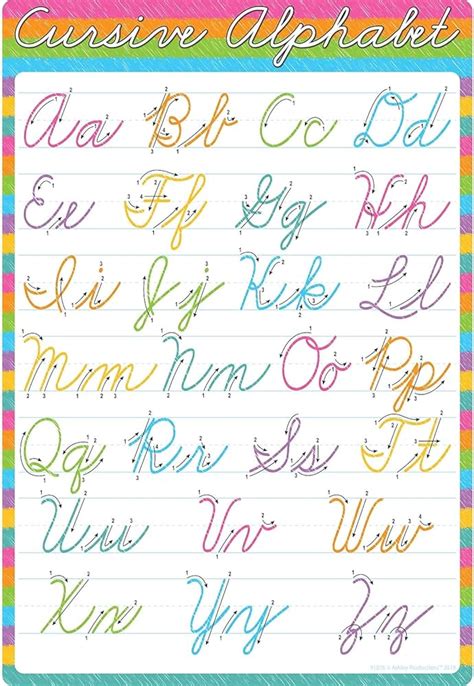 Cursive Alphabet
Aa Bb Cc Dd
Ee Ff Gg Hh
Ii Jj Kk Ll
Mm Nn Oo Pp
Qq Rr Ss Tt
Uu Vv Ww
Xx Yy Zz